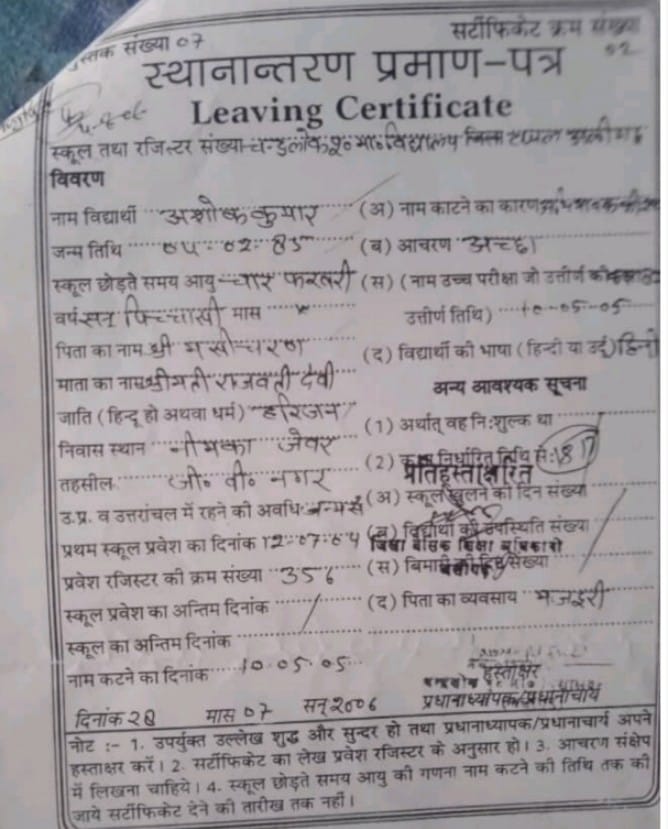 पुस्तक संख्या 07
सर्टीफिकेट क्रम संख्या
02
स्थानान्तरण प्रमाण-पत्र
Leaving Certificate
स्कूल तथा रजिस्टर संख्या
विवरण
नाम विद्यार्थी अशोक कुमार (अ) नाम काटने का कारण
जन्म तिथि 04-02-85 (ब) आचरण अच्छा
स्कूल छोड़ते समय आयु चार फरवरी (स) (नाम उच्च परीक्षा जो उत्तीर्ण की
वर्ष सन पिच्चासी मास उत्तीर्ण तिथि) 10-05-05
पिता का नाम श्री (द) विद्यार्थी की भाषा (हिन्दी या उर्दू) हिन्दी
माता का नाम श्रीमती राजवती देवी अन्य आवश्यक सूचना
जाति (हिन्दू हो अथवा धर्म) हरिजन (1) अर्थात् वह नि:शुल्क था
निवास स्थान नीमका जेवर (2) निर्धारित तिथि से:
प्रतिहस्ताक्षरित
तहसील जी० वी० नगर (अ) स्कूल खुलने की दिन संख्या
उ.प्र. व उत्तरांचल में रहने की अवधि जन्म से (ब) विद्यार्थी की उपस्थिति संख्या
प्रथम स्कूल प्रवेश का दिनांक 12-07-04 बेसिक शिक्षा अधिकारी
प्रवेश रजिस्टर की क्रम संख्या 356 (स) बिमारी की दिन संख्या
स्कूल प्रवेश का अन्तिम दिनांक (द) पिता का व्यवसाय मजदूरी
स्कूल का अन्तिम दिनांक
नाम कटने का दिनांक 10-05-05 हस्ताक्षर
प्रधानाध्यापक/प्रधानाचार्य
दिनांक 28 मास 07 सन् 2006
नोट :- 1. उपर्युक्त उल्लेख शुद्ध और सुन्दर हो तथा प्रधानाध्यापक/प्रधानाचार्य अपने
हस्ताक्षर करें। 2. सर्टीफिकेट का लेख प्रवेश रजिस्टर के अनुसार हो। 3. आचरण संक्षेप
में लिखना चाहिये। 4. स्कूल छोड़ते समय आयु की गणना नाम कटने की तिथि तक की
जाये सर्टीफिकेट देने की तारीख तक नहीं।